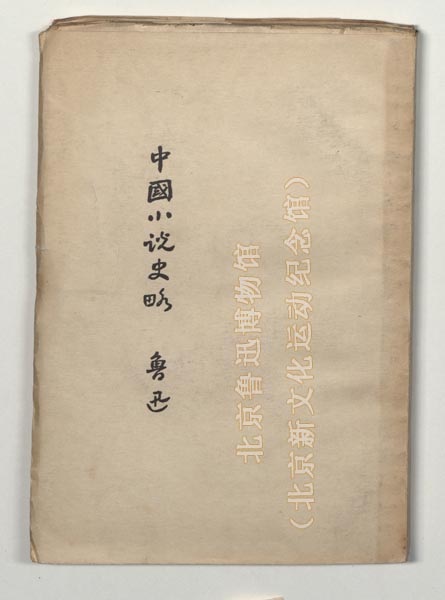 中國小说史略 鲁迅
北京鲁迅博物馆
（北京新文化运动纪念馆）